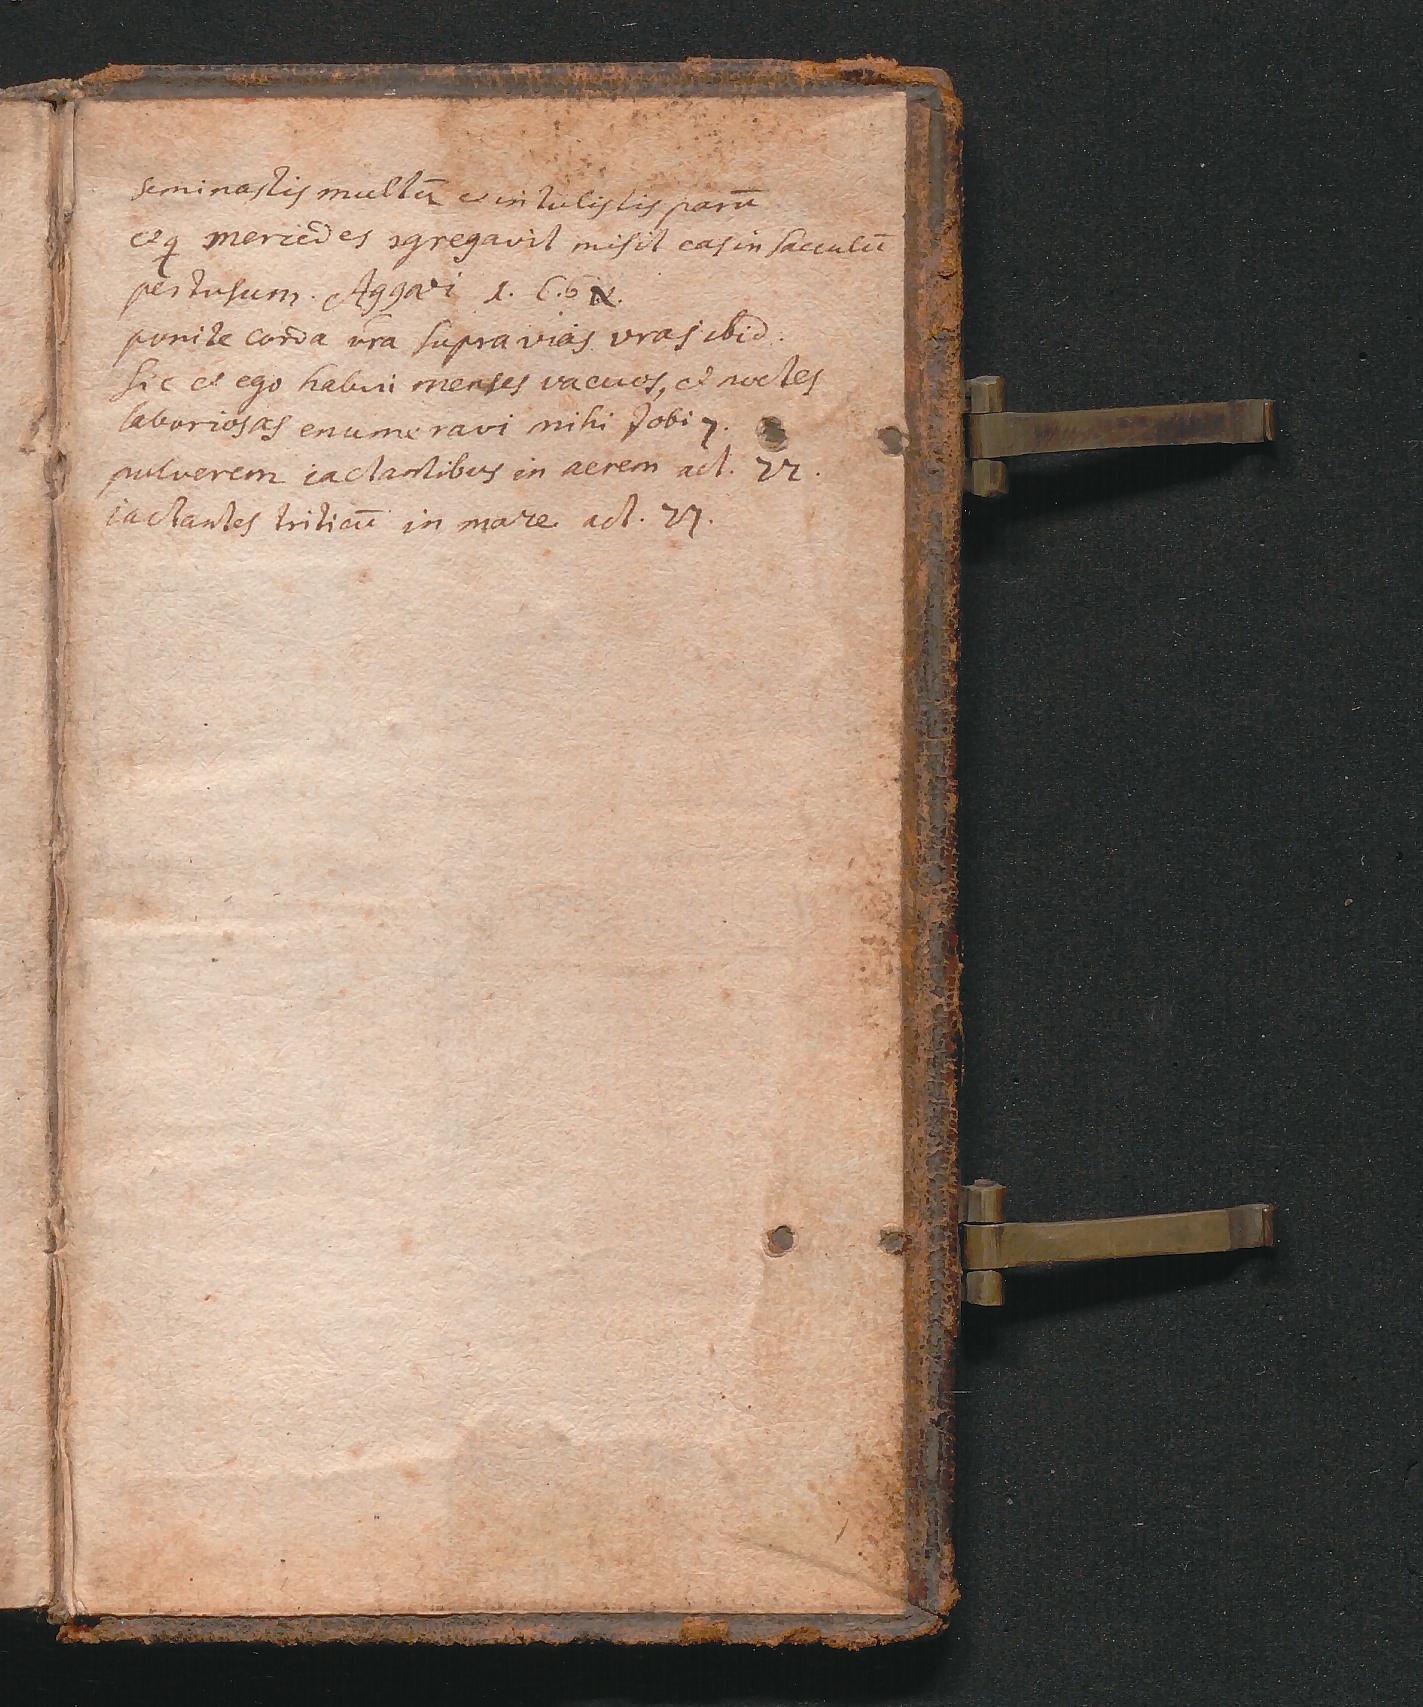 seminastis multū et intulistis parū
et q mercēdes ꝯgregavit misit eas in sacculū
pertusum. Aggaei 1. C. 6
ponite corda vr̄a supra vias vras ibid.
Sic et ego habui menses vacuos, et noctes
laboriosas enumeravi mihi Jobi 7.
pulverem iactantibus in aerem act. 22.
iactantes triticū in mare act. 27.